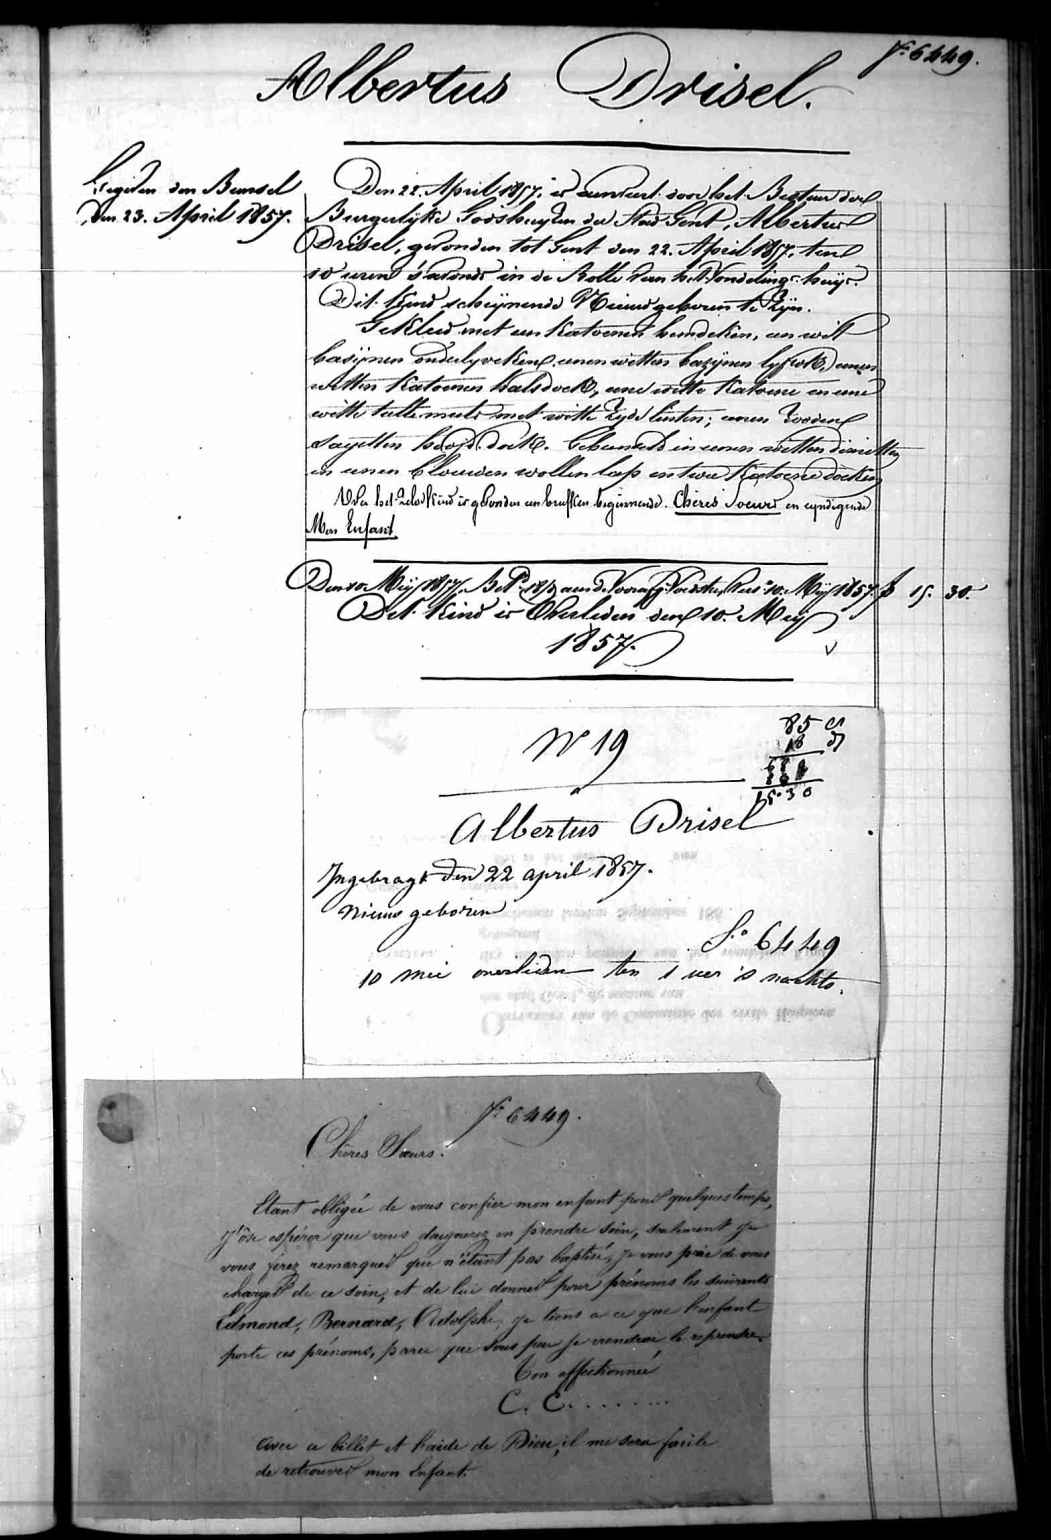 Fº 6449.
Albertus Drisel.
den 23. April 1857.
Den 22. April 1857, is aenveert door het Bestuer der
Burgerlyke Godshuyzen der Stad Gent, Albertus
Drisel, gevonden tot Gent den 22. April 1857, ten
10 uren s'avonds in de Rolle van het Vondelings-huys.
Dit kind schynende Nieuwgeboren te Zyn.
Gekleed met een katoenen hemdeken, een wit
basynen onderlyveken, eenen witten bazynen lyfrok, eenen
witten katoenen halsdoek, eene witte katoene en eene
witte tulle muts met witte zyde linten; eenen rooden
sayetten hoofddoek. Gebunseld in eenen witten
en eenen blauwen wollen lap en twee katoene doeken
het kind is gevonden een briefken beginnende. Chères Soeurs en eyndigende
Mon Enfant
Den 10 Mey 1857. 10. Mey 1857. f 15. 30.
Det Kind is Overleden den 10. Mey
1857.
Nº 19
85 c
18 d
680
15.30
Albertus Drisel
Ingebragt den 22 april 1857.
Nieuw geboren
Fº 6449
10 mei overleden ten 1 uer 's nachts.
Fº 6449.
Chères Sœurs.
Etant obligée de vous confier mon enfant pour quelques temps,
j'ôse espérer que vous daignerez en prendre soin, seulement je
vous ferez remarquer que n'étant pas baptisé, je vous prie de vous
charger de ce soin, et de lui donner pour prénoms les suivants
Edmond, Bernard, Adolphe, je tiens a ce que l'enfant
porte ces prénoms, parce que sous peu je viendrai le reprendre.
Ton affectionnée
C. C. . . . . . .
avec ce billet et l'aide de Dieu, il me sera facile
de retrouver mon Enfant.